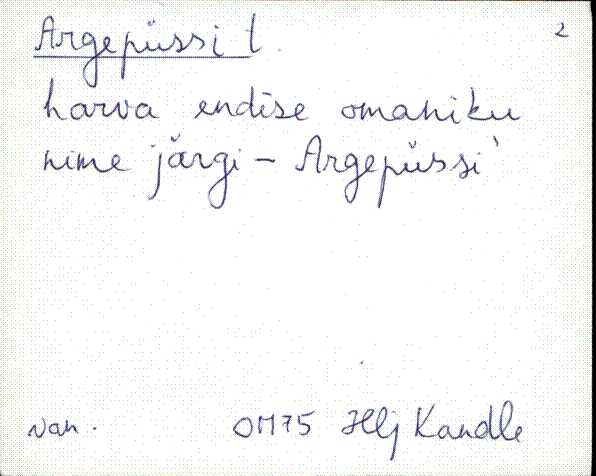 2
Argepüssi t.
harva endise omaniku
nime järgi – Argepüssi`
van. OM75 Hlj Kandle